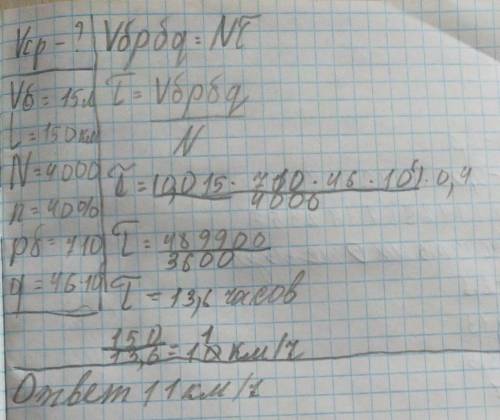 Vср - ?
Vб = 15л
L = 150км
N = 4000
n = 40%
pб = 710
q = 46·10
Vбpбq = Nτ
τ = Vбpбq
N
τ = (0,015 · 710 · 46 · 10⁶) · 0,4
4000
τ = 489900
3600
τ = 13,6 часов
150
13,6 = 11 км/ч
Ответ 11км/ч